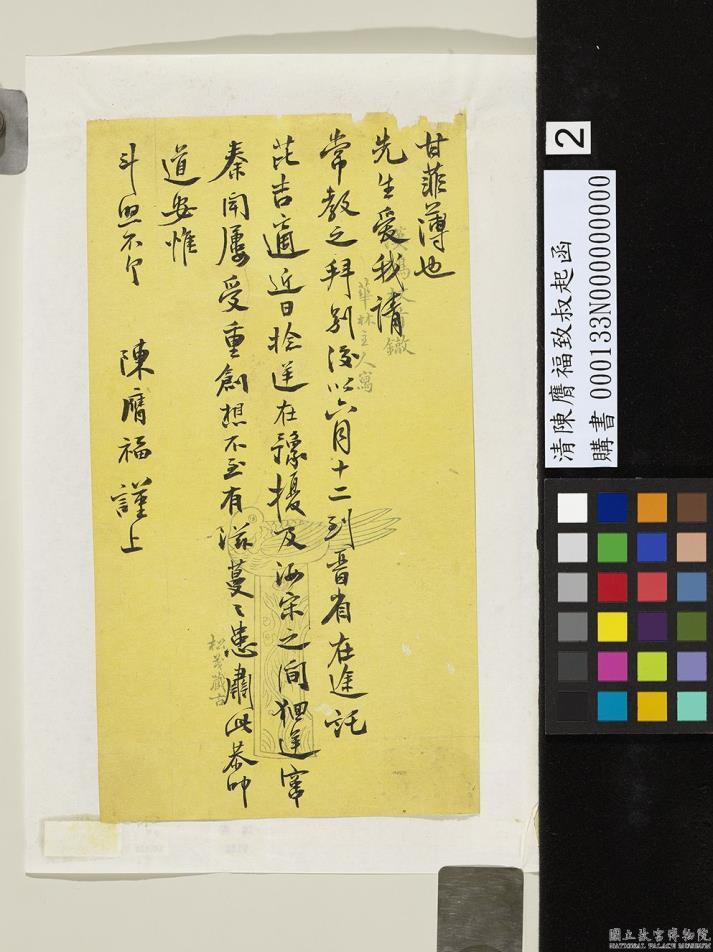 甘菲薄也
先生愛我請
常教之拜別後以六月十二到晉省在途託
芘吉適近日捻逆在豫擾及汝宋之間狙逆竄
秦聞屢受重創想不至有滋蔓之患肅此恭叩
道安惟
斗照不宀
陳膺福謹上
華林主人寫
松茂藏古
2
清陳膺福致叔起函
購書 000133N000000000
國立故宮博物院
NATIONAL PALACE MUSEUM